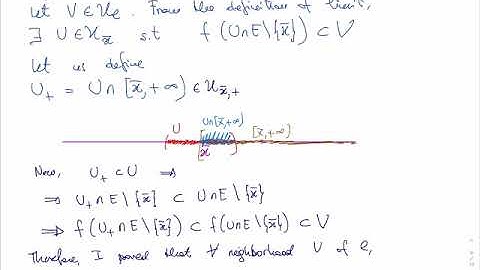 Let V ∈ 𝒰_ℓ. From the definition of limit,
∃ U ∈ 𝒰_x̄ s.t f(U∩E\{x̄}) ⊂ V
Let us define
U₊ = U∩[x̄,+∞) ∈ 𝒰_x̄,+
U∩[x̄,+∞)
U [x̄,+∞)
x̄
Now, U₊ ⊂ U ⟹
⟹ U₊∩E\{x̄} ⊂ U∩E\{x̄}
⟹ f(U₊∩E\{x̄}) ⊂ f(U∩E\{x̄}) ⊂ V
Therefore, I proved that ∀ neighborhood V of ℓ,